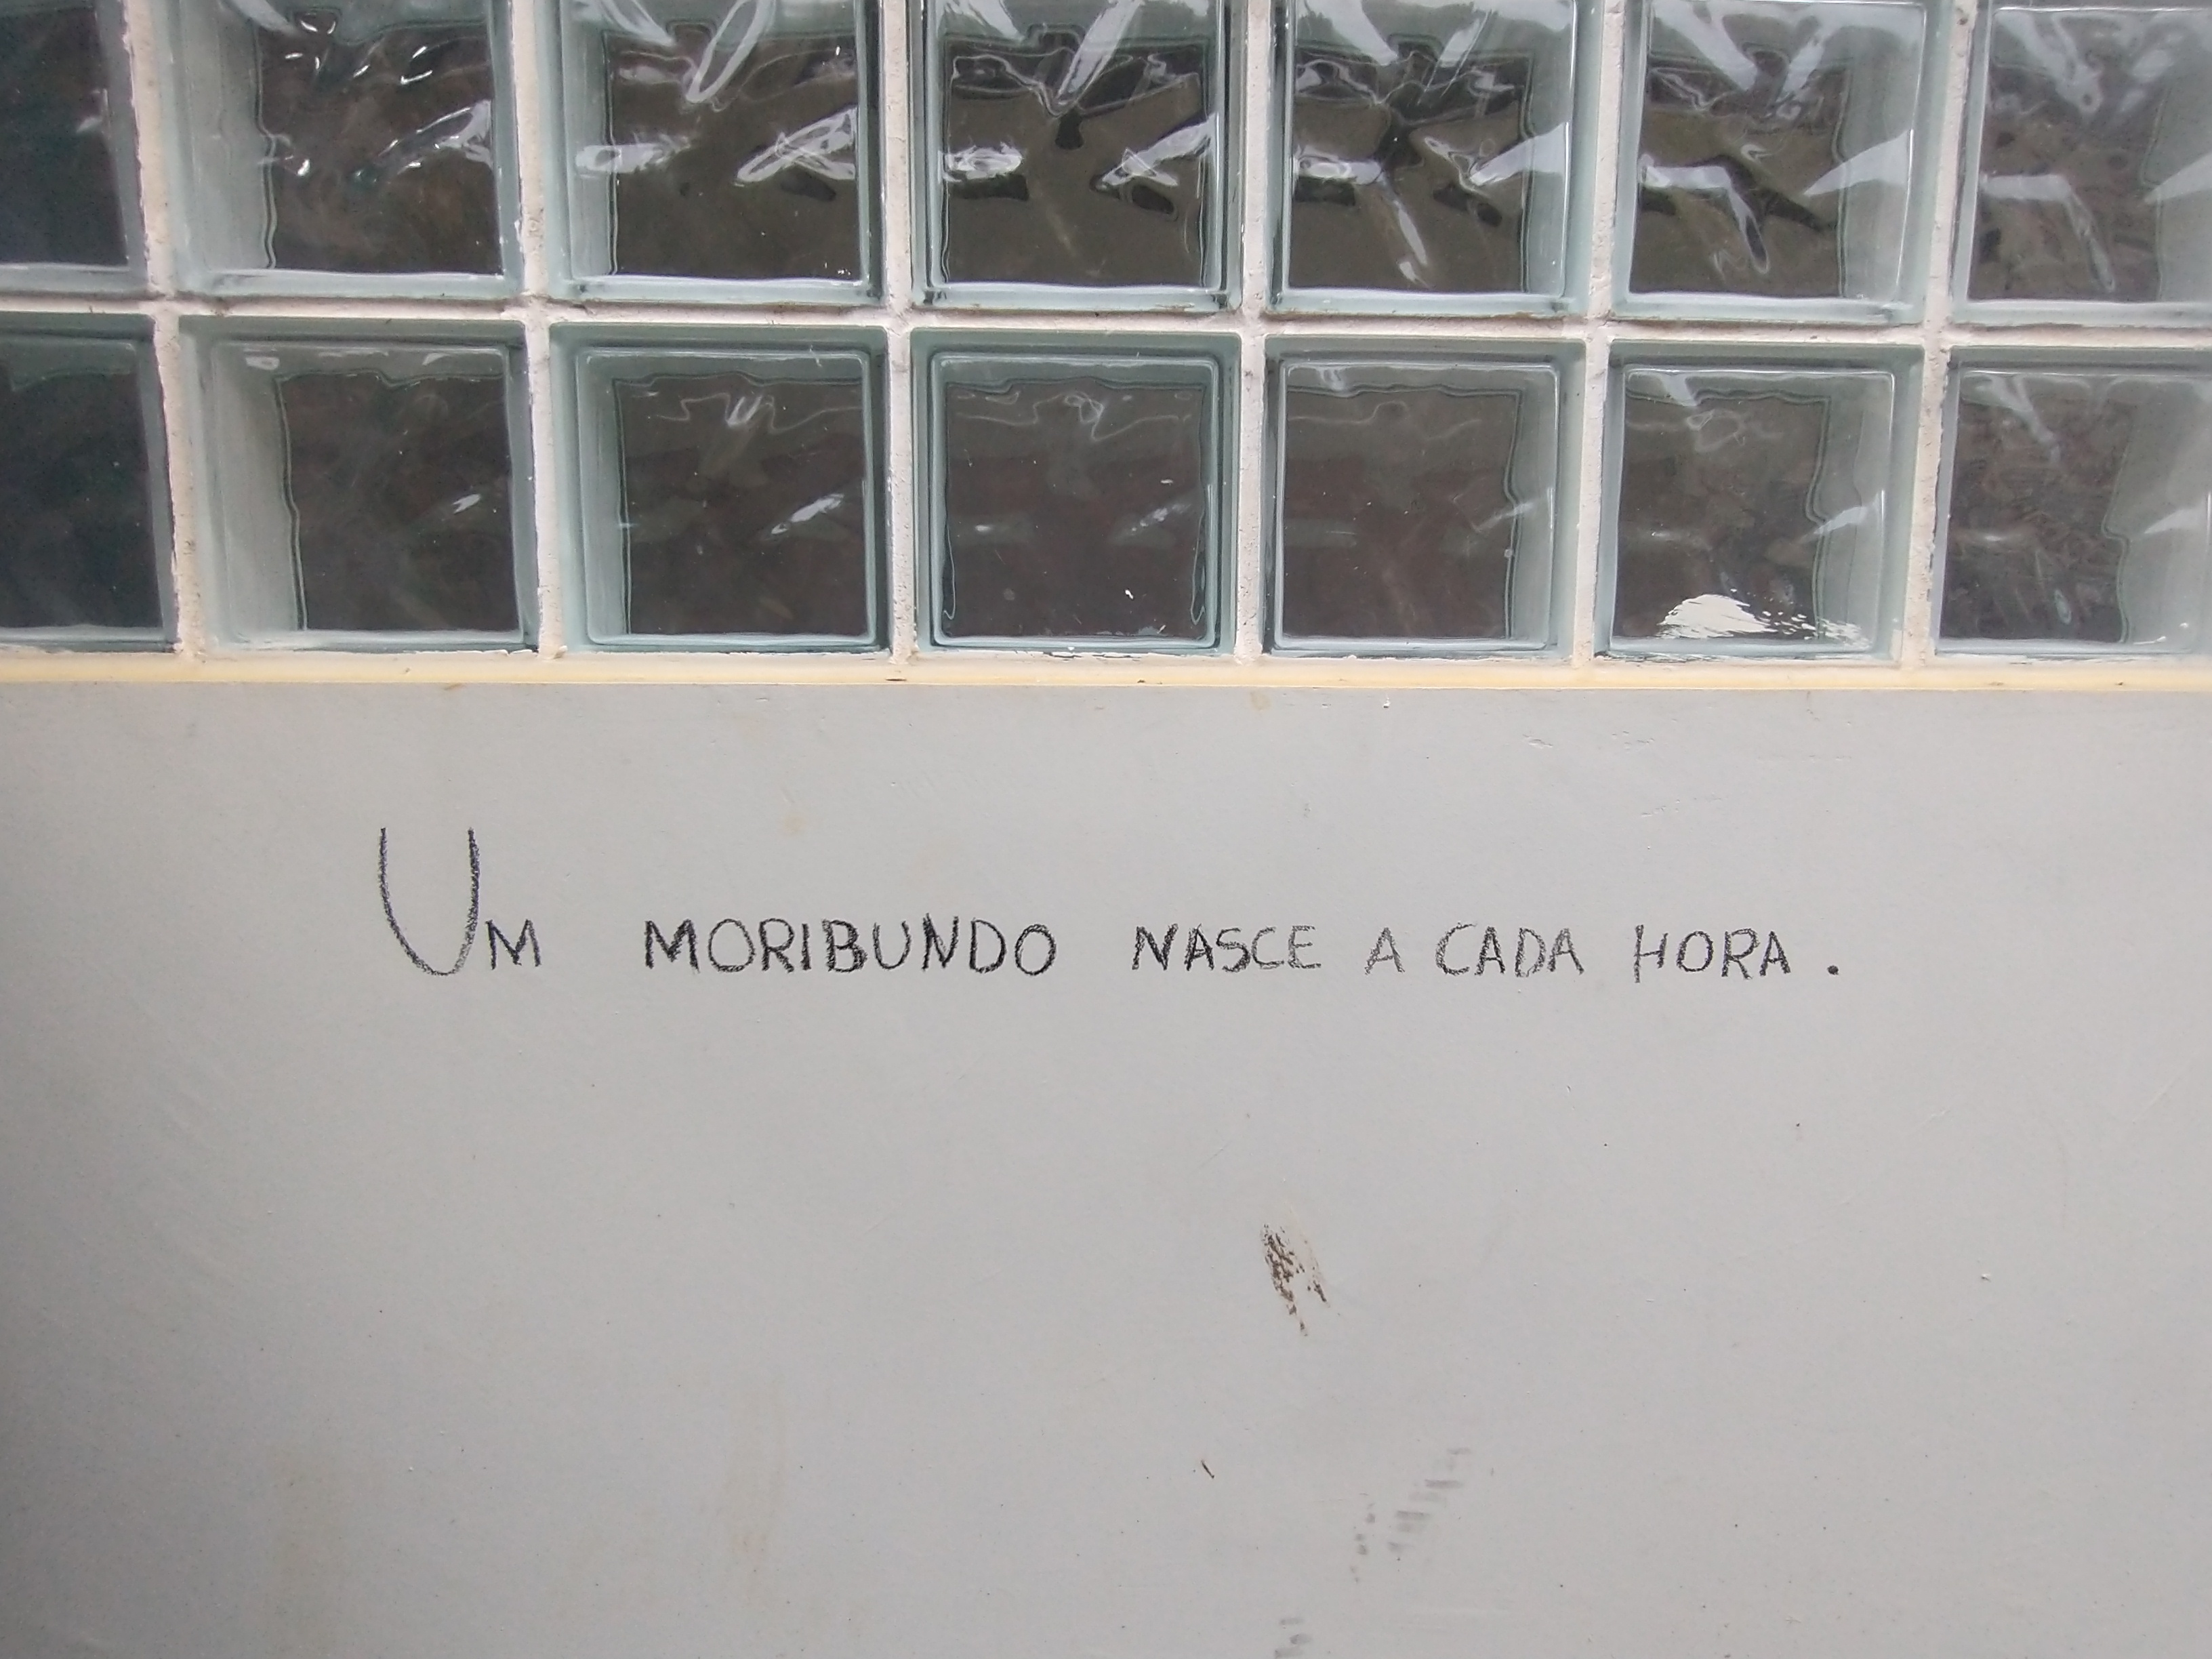 UM MORIBUNDO NASCE A CADA HORA.